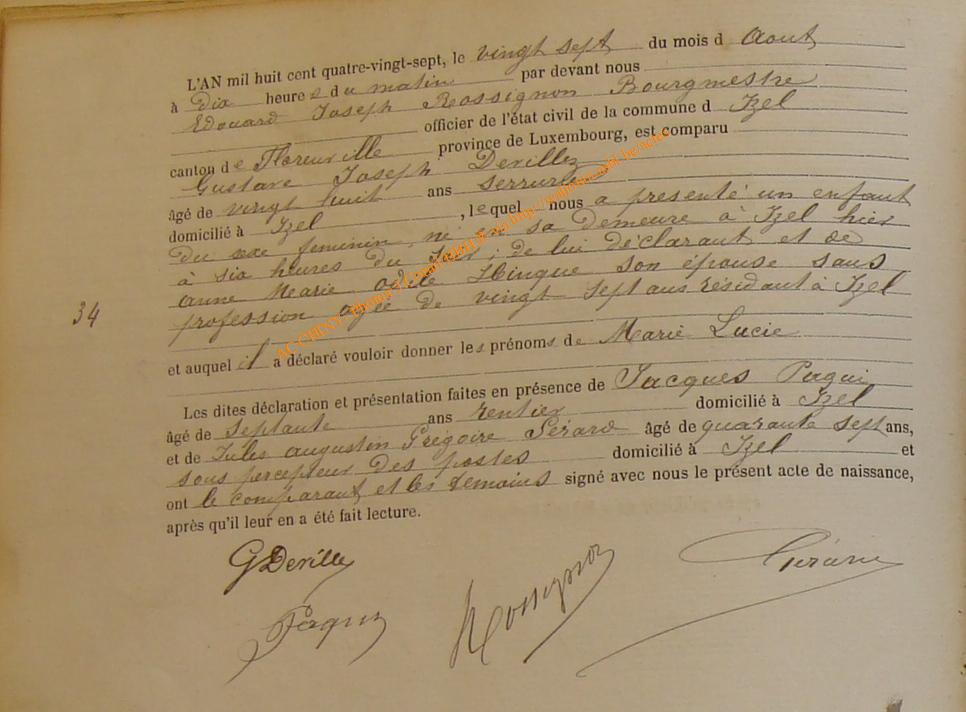 L'AN mil huit cent quatre-vingt-sept, le vingt sept du mois d Aout
à dix heures du matin par devant nous
Edouard Joseph Rossignon Bourgmestre
officier de l'état civil de la commune d Izel
canton de Florenville province de Luxembourg, est comparu
Gustave Joseph Devillez
âgé de vingt huit ans serrurier
domicilié à Izel , lequel nous a présenté un enfant
du sexe feminin, né en sa demeure à Izel hier
à six heures du soir; de lui déclarant et de
anne Marie odile Hinque son épouse sans
34
profession agée de vingt sept ans résidant à Izel
et auquel il a déclaré vouloir donner les prénoms de Marie Lucie
Les dites déclaration et présentation faites en présence de Jacques Paqui
âgé de septante ans rentier domicilié à Izel
et de Jules augustin Grégoire Gérard âgé de quarante sept ans,
sous percepteur des postes domicilié à Izel et
ont le comparant et les témoins signé avec nous le présent acte de naissance,
après qu'il leur en a été fait lecture.
GDevillez
Gérard
Rossignon
Paqui